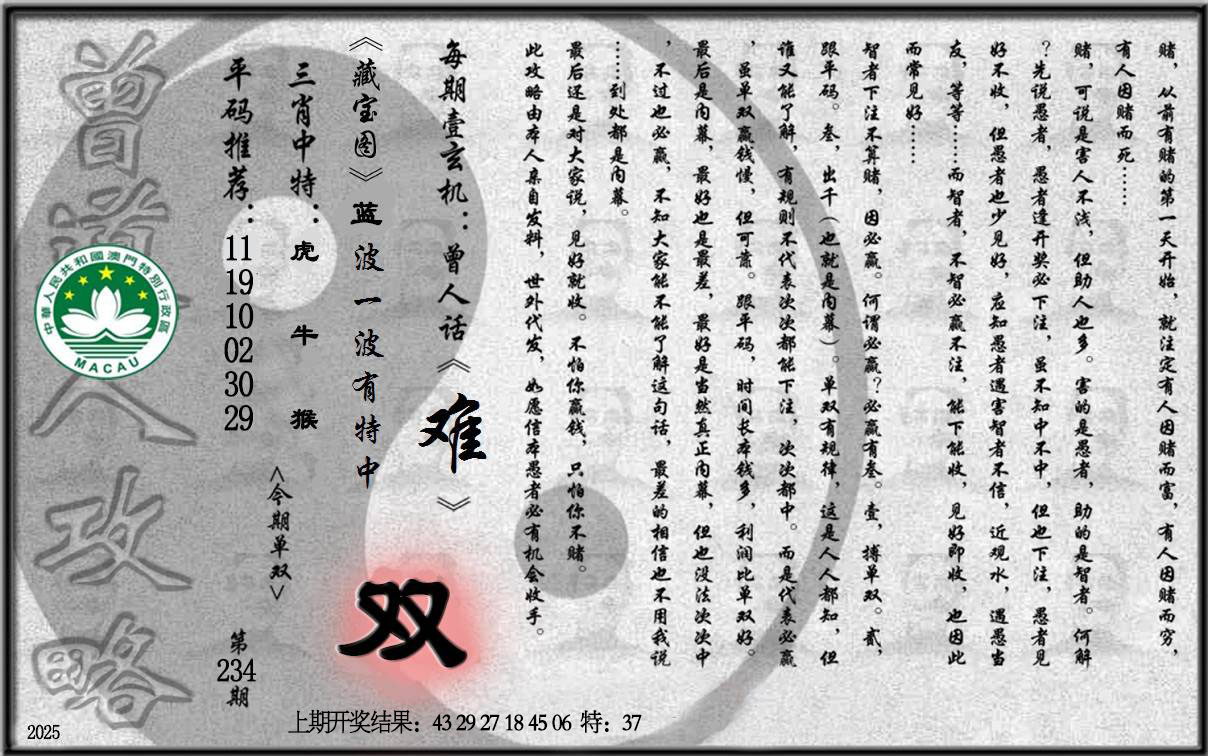 赌，从前有赌的第一天开始，就注定有人因赌而富，有人因赌而穷，
有人因赌而死……
赌，可说是害人不浅，但助人也多。害的是愚者，助的是智者。何解
？先说愚者，愚者逢开奖必下注，虽不知中不中，但也下注，愚者见
好不收，但愚者也少见好，应知愚者遇害智者不信，近观水，遇愚当
友，等等……而智者，不智必赢不注，能下能收，见好即收，也因此
而常见好……
智者下注不算赌，因必赢。何谓必赢？必赢有叁。壹，搏单双。贰，
跟平码。叁，出千（也就是内幕）。单双有规律，这是人人都知，但
谁又能了解，有规则不代表次次都能下注，次次都中。而是代表必赢
，虽单双赢钱慢，但可靠。跟平码，时间长本钱多，利润比单双好。
最后是内幕，最好也是最差，最好是当然真正内幕，但也没法次次中
，不过也必赢，不知大家能不能了解这句话，最差的相信也不用我说
……到处都是内幕。
最后还是对大家说，见好就收。不怕你赢钱，只怕你不赌。
此攻略由本人亲自发料，世外代发，如愿信本愚者必有机会收手。
每期壹玄机：曾人话《难》
《藏宝图》蓝波一波有特中
双
三肖中特：虎 牛 猴
<今期单双>
平码推荐：11 19 10 02 30 29
第234期
曾道人攻略
中華人民共和國澳門特別行政區
MACAU
2025
上期开奖结果：43 29 27 18 45 06 特：37